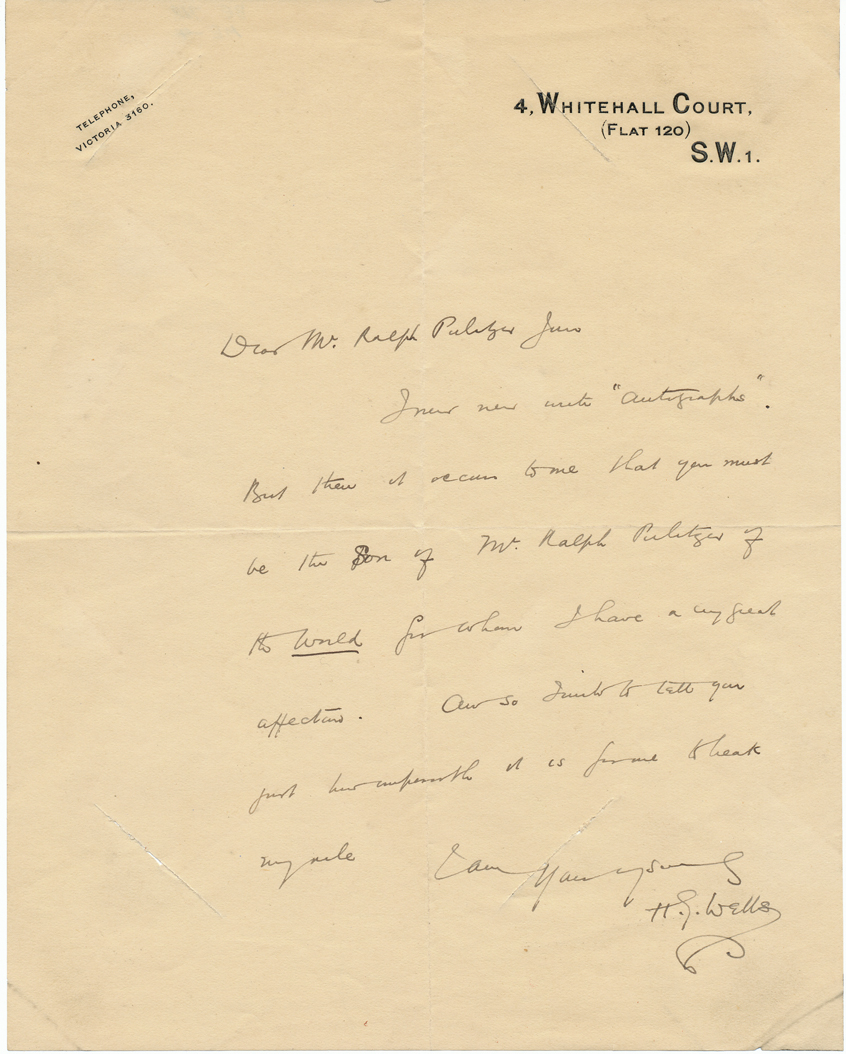 TELEPHONE,
VICTORIA 3160.
4, WHITEHALL COURT,
(FLAT 120)
S.W.1.
Dear Mr. Ralph Pulitzer Junr
I never never write "autographs".
But then it occurs to me that you must
be the Son of Mr. Ralph Pulitzer of
the World for whom I have a very great
affection. And so I write to tell you
just how impossible it is for me to break
my rule I am Yours
H.G. Wells